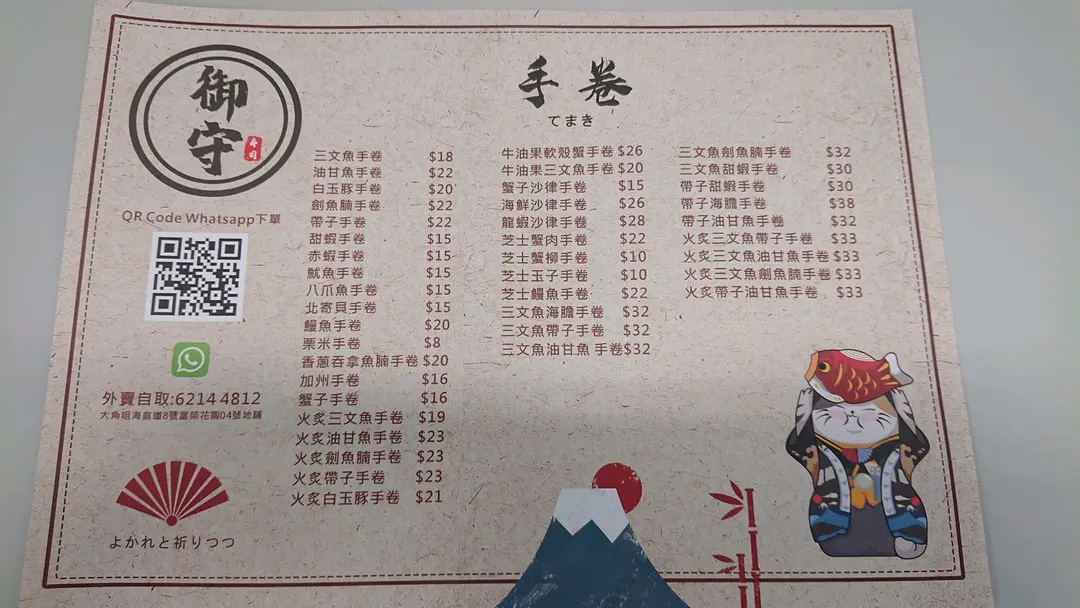 御守
寿司
QR Code Whatsapp下單
外賣自取:6214 4812
大角咀海庭道8號富榮花園04號地鋪
よかれと祈りつつ
手卷
てまき
三文魚手卷 $18
油甘魚手卷 $22
白玉豚手卷 $20
劍魚腩手卷 $22
帶子手卷 $22
甜蝦手卷 $15
赤蝦手卷 $15
魷魚手卷 $15
八爪魚手卷 $15
北寄貝手卷 $15
鰻魚手卷 $20
栗米手卷 $8
香蔥吞拿魚腩手卷 $20
加州手卷 $16
蟹子手卷 $16
火炙三文魚手卷 $19
火炙油甘魚手卷 $23
火炙劍魚腩手卷 $23
火炙帶子手卷 $23
火炙白玉豚手卷 $21
牛油果軟殼蟹手卷 $26
牛油果三文魚手卷 $20
蟹子沙律手卷 $15
海鮮沙律手卷 $26
龍蝦沙律手卷 $28
芝士蟹肉手卷 $22
芝士蟹柳手卷 $10
芝士玉子手卷 $10
芝士鰻魚手卷 $22
三文魚海膽手卷 $32
三文魚帶子手卷 $32
三文魚油甘魚 手卷$32
三文魚劍魚腩手卷 $32
三文魚甜蝦手卷 $30
帶子甜蝦手卷 $30
帶子海膽手卷 $38
帶子油甘魚手卷 $32
火炙三文魚帶子手卷 $33
火炙三文魚油甘魚手卷 $33
火炙三文魚劍魚腩手卷 $33
火炙帶子油甘魚手卷 $33